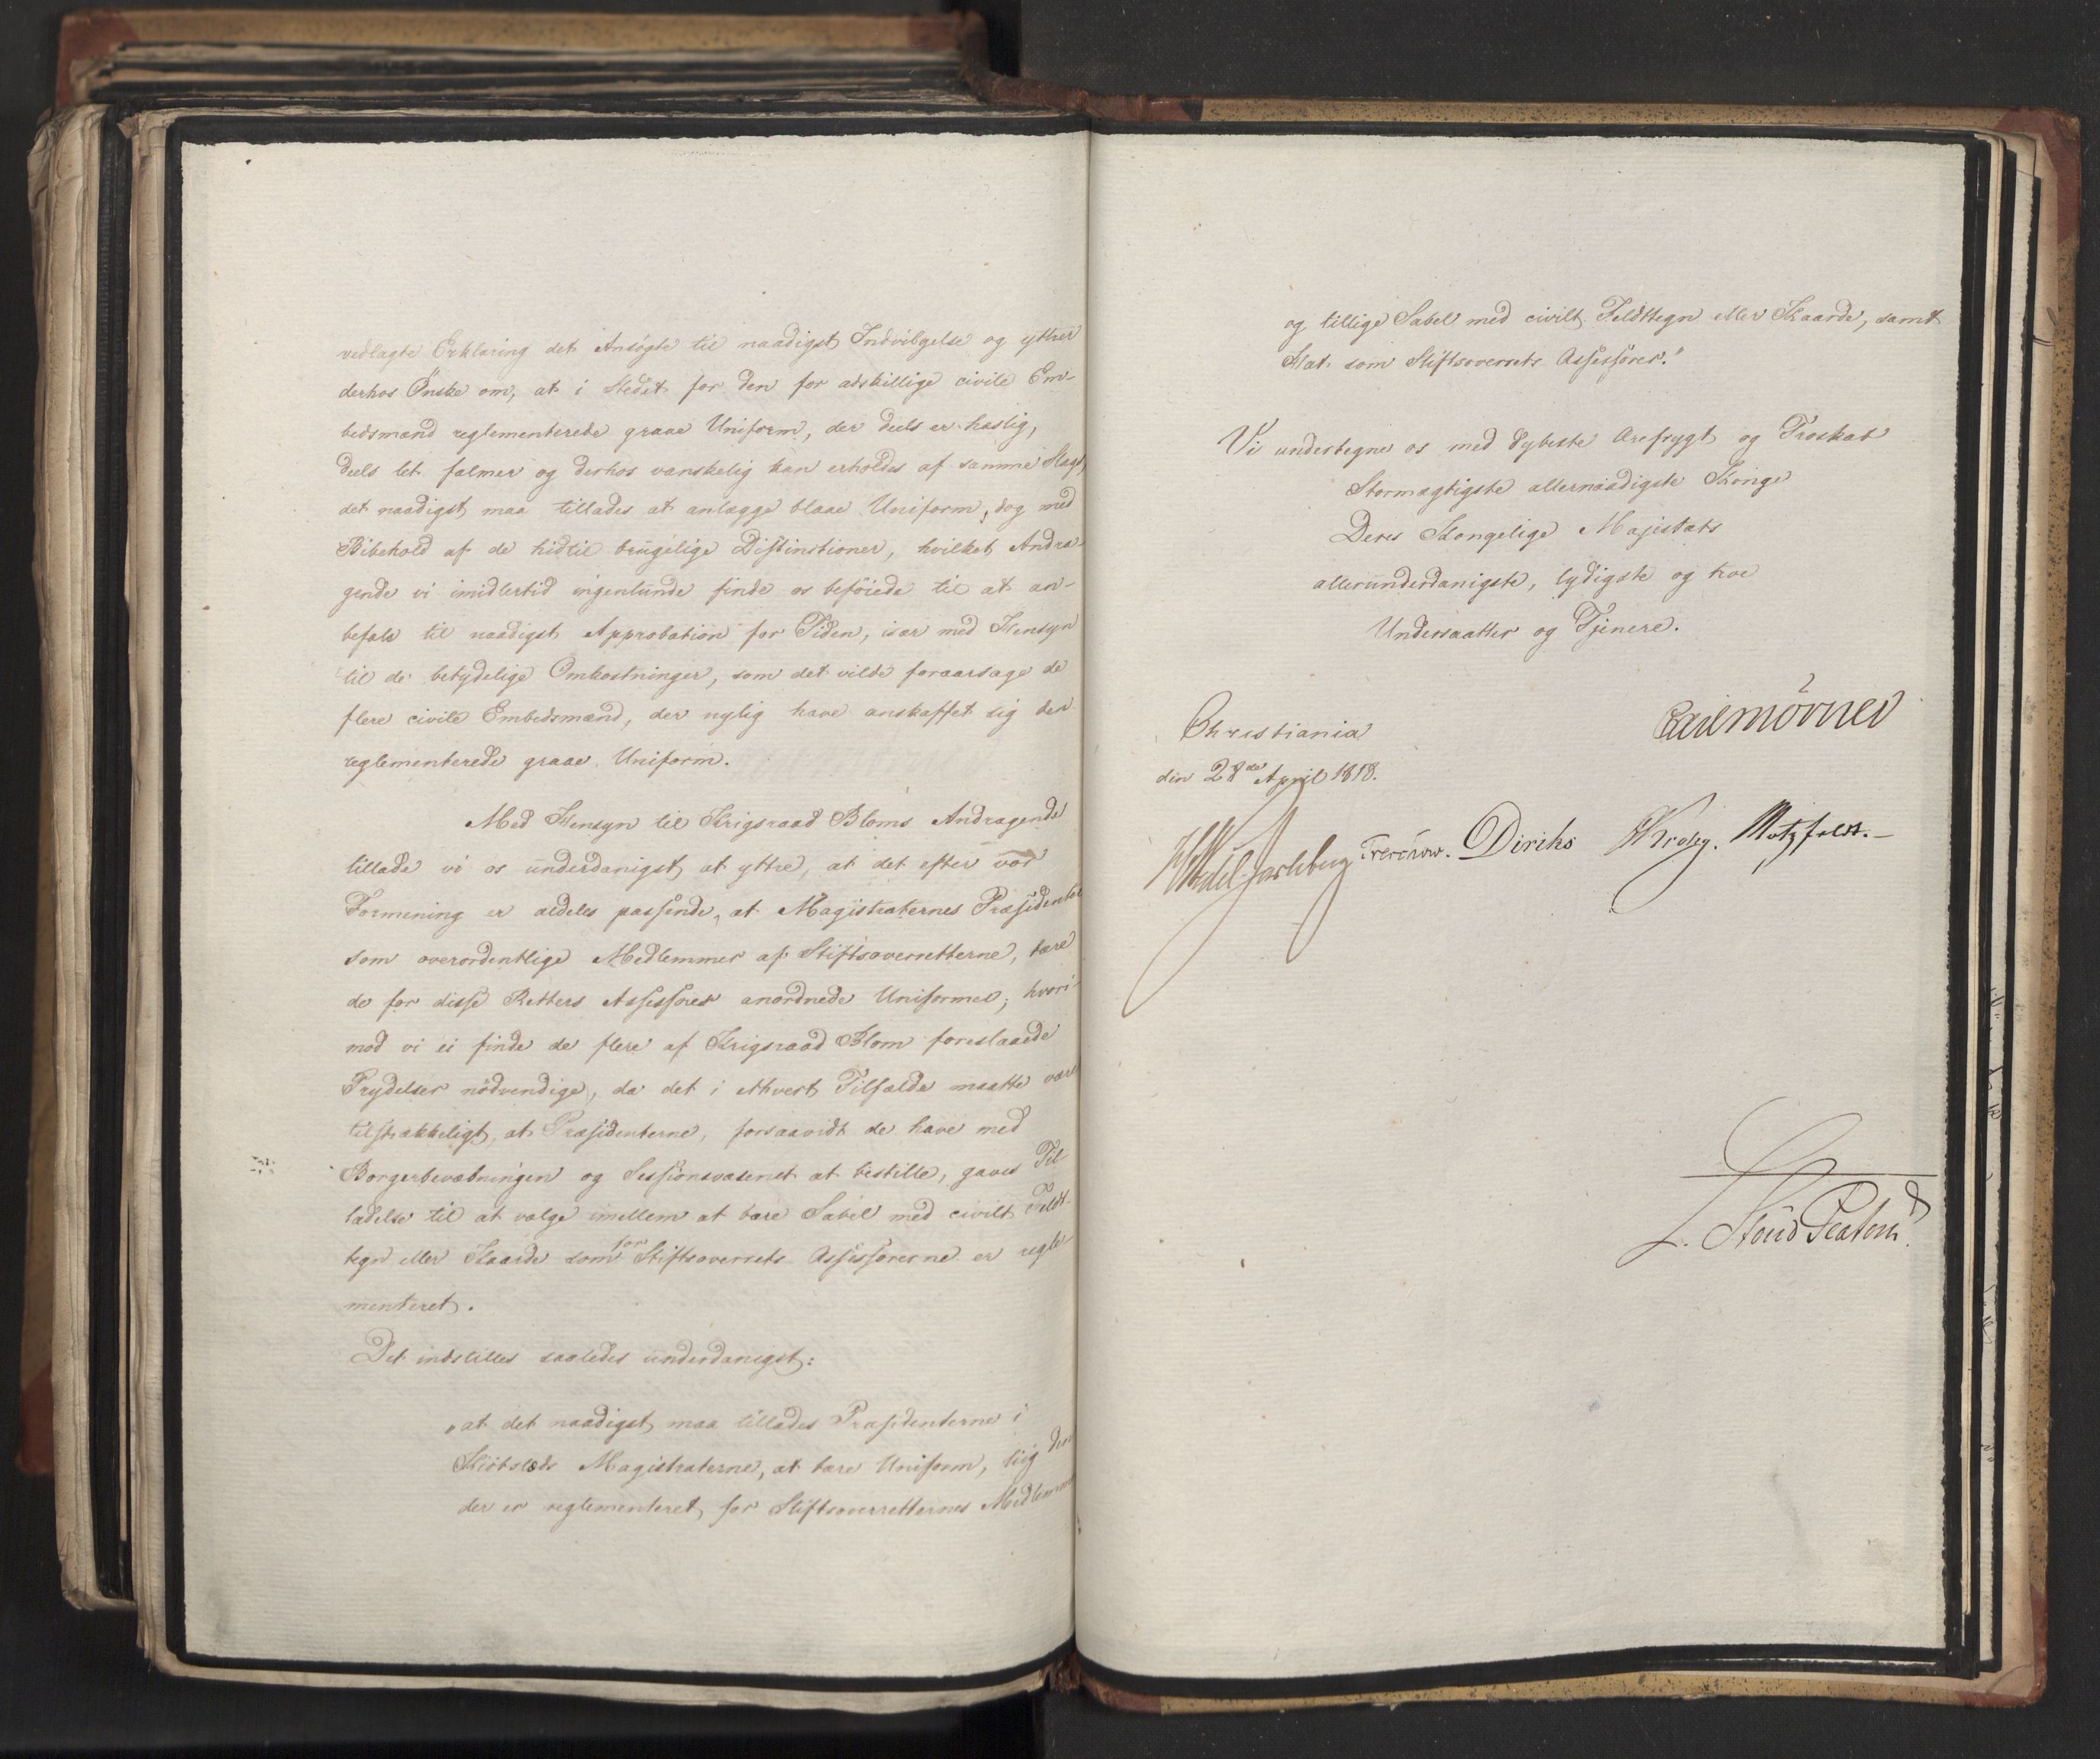 vedlagte Erklæring det Ansøgte til naadigst Indvilgelse og yttrer
derhos Ønske om, at i Stedet for den for adskillige civile Em-
bedsmænd reglementerede graae Uniform, der deels er hæslig,
deels let falmer og derhos vanskelig kan erholdes af samme Slags,
det naadigst maa tillades at anlægge blaae Uniform, dog med
Bibehold af de hidtil brugelige Distinctioner, hvilket Andra-
gende vi imidlertid ingenlunde finde os beföiede til at an-
befale til naadigst Approbation for Tiden, især med Hensyn
til de betydelige Omkostninger, som det vilde foraarsage de
flere civile Embedsmænd, der nylig have anskaffet sig den
reglementerede graae Uniform.
Med Hensyn til Krigsraad Bloms Andragende
tillade vi os underdanigst at yttre, at det efter vor
Formening er aldeles passende, at Magistraternes Præsidenter
som overordentlige Medlemmer af Stiftsoverretterne, bære
de for disse Retters Assessorer anordnede Uniformer; hvori-
mod vi ei finde de flere af Krigsraad Blom foreslaaede
Prydelser nödvendige, da det i ethvert Tilfælde maatte være
tilstrækkeligt, at Præsidenterne, forsaavidt de have med
Borgerbevæbningen og Sessionsvæsenet at bestille, gaves Til-
ladelse til at vælge imellem at bære Sabel med civilt Feldt-
tegn eller Kaarde som for Stiftsoverrets Assessorerne er regle-
menteret.
Det indstilles saaledes underdanigst:
"at det naadigst maa tillades Præsidenterne i
Kiöbstæds Magistraterne, at bære Uniform, liig den
der er reglementeret for Stiftsoverretternes Medlemmer
og tillige Sabel med civilt Feldttegn eller Kaarde, samt
Hat som Stiftsoverrets Assessorer."
Vi undertegne os med dybeste Ærefrygt og Troskab
Stormægtigste allernaadigste Konge
Deres Kongelige Majestæts
allerunderdanigste, lydigste og troe
Undersaatter og Tjenere.
Carl Mörner
Christiania
den 28de April 1818.
HWedel Jarlsberg Treschow. Diriks Krogh. Motzfeldt.
L. Stoud Platou